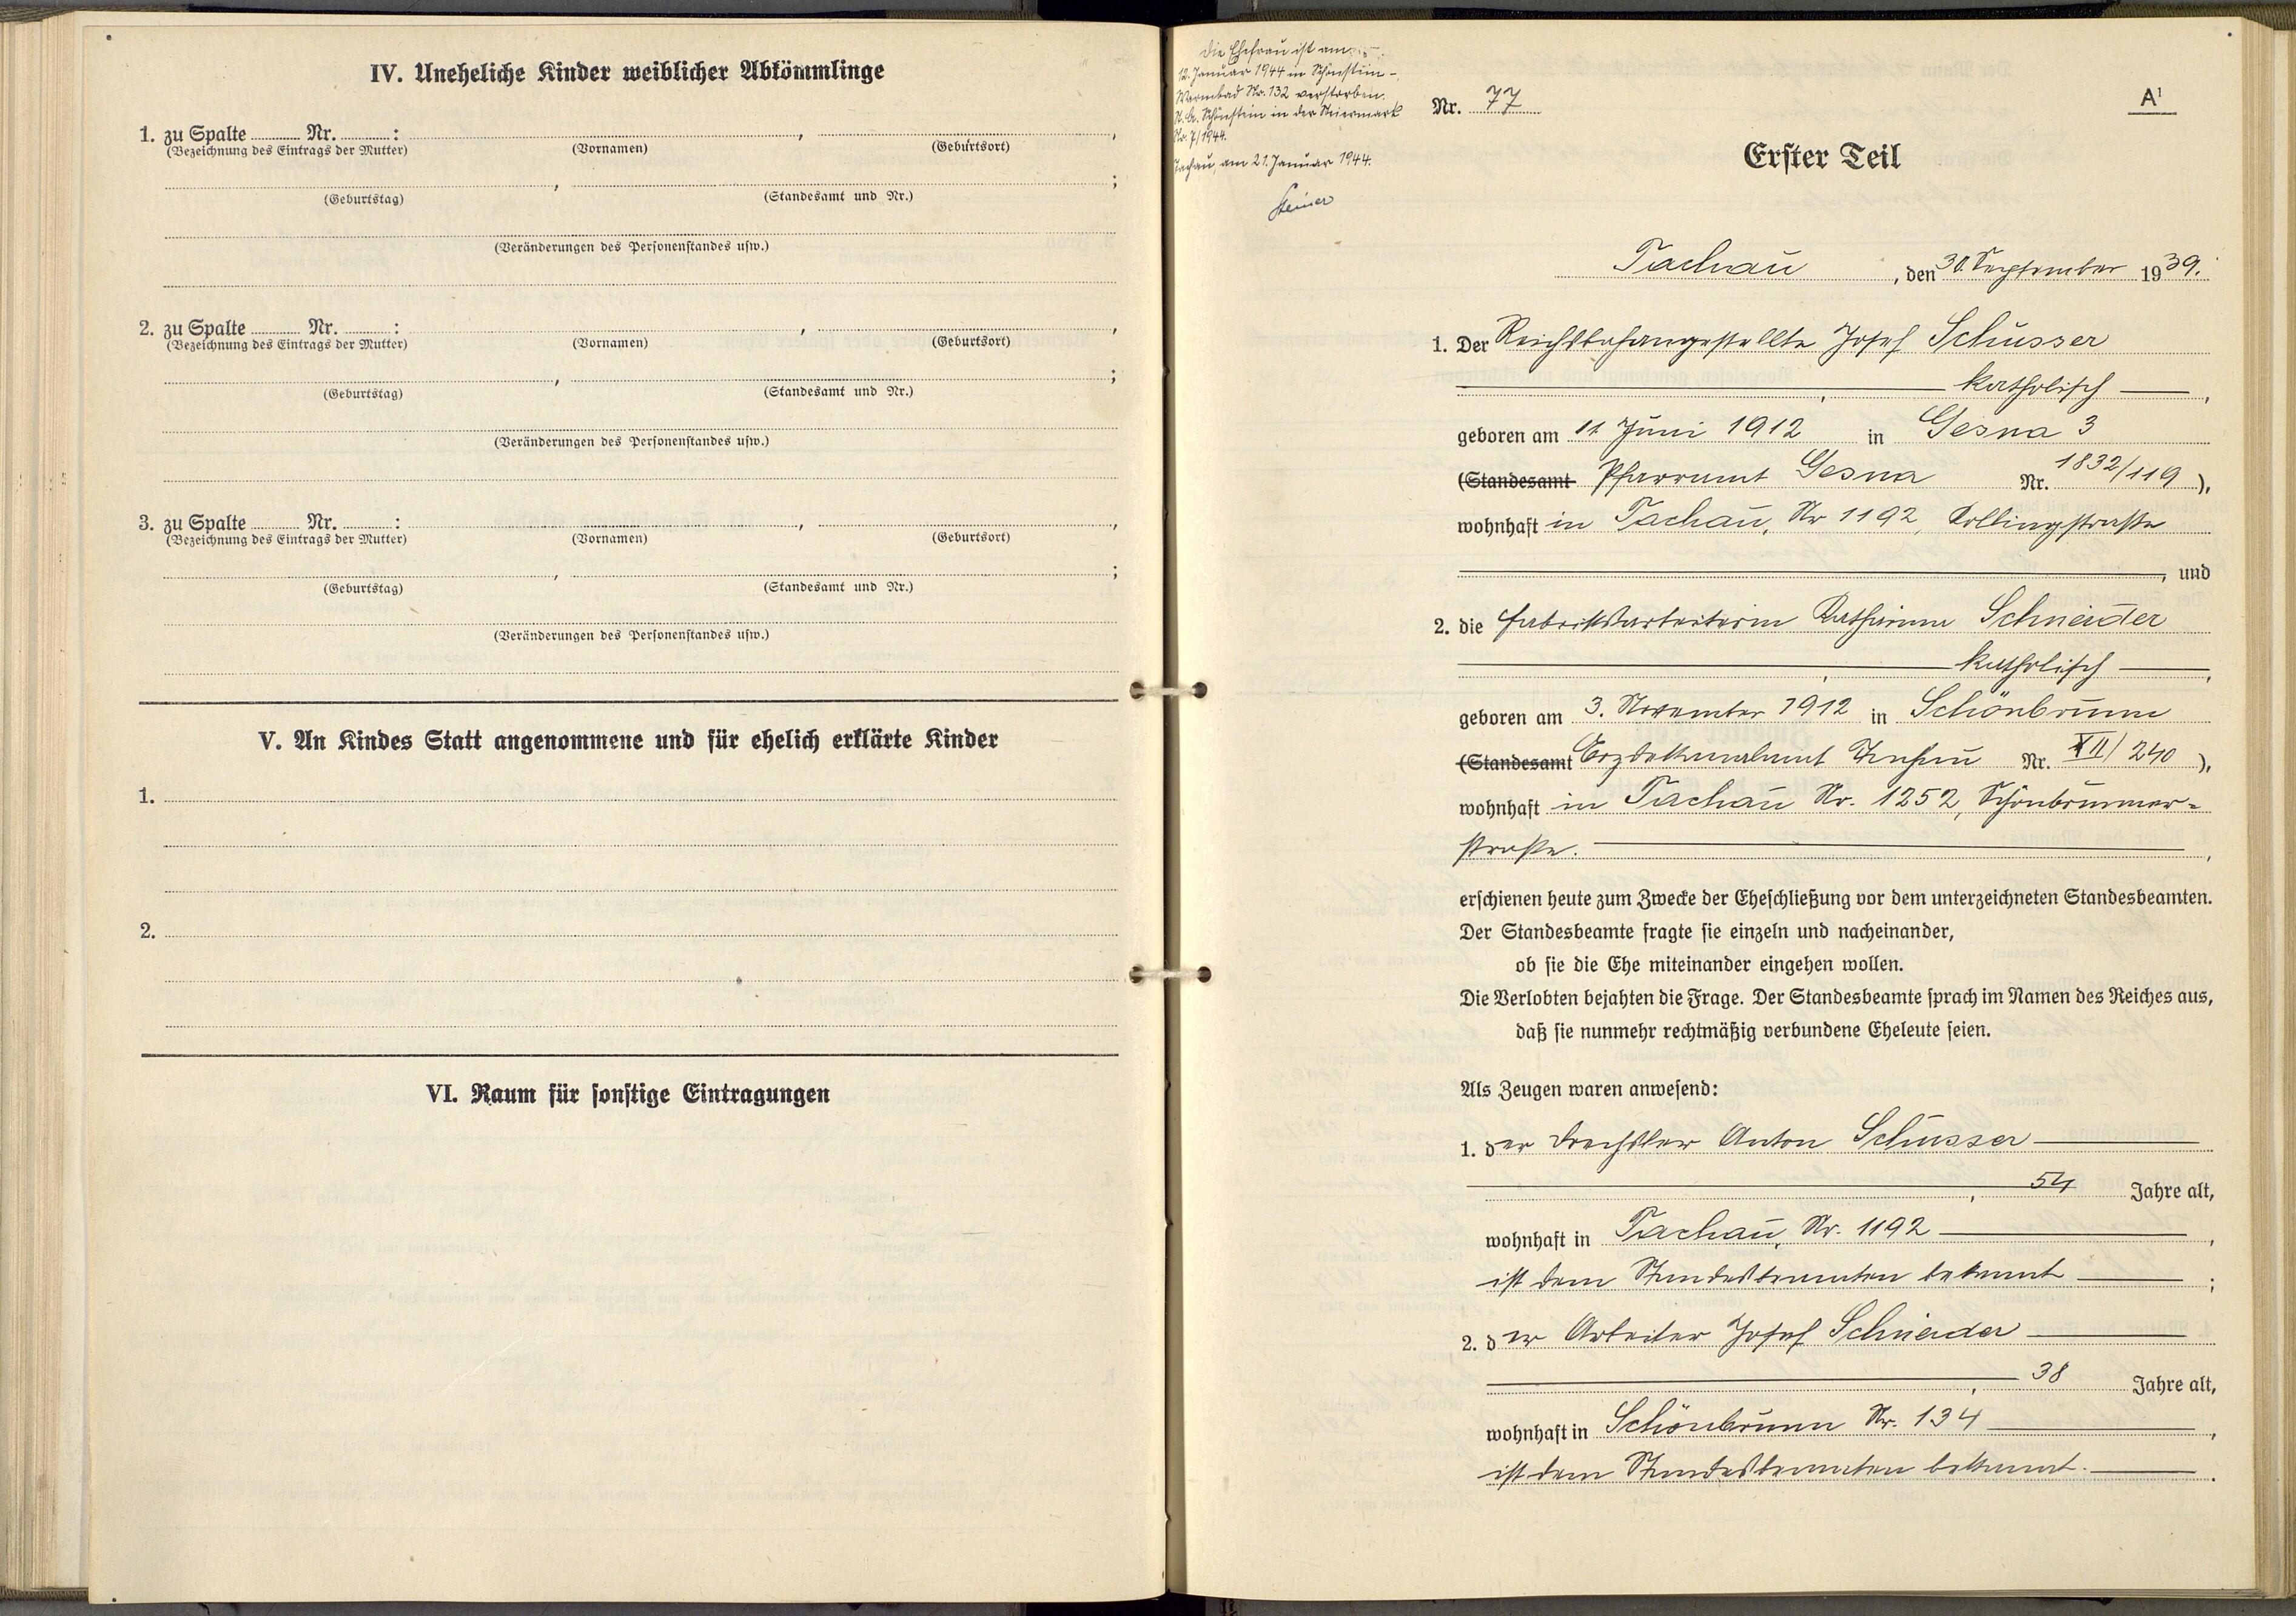 IV. Uneheliche Kinder weiblicher Abkömmlinge
1. zu Spalte Nr. : , ,
(Bezeichnung des Eintrags der Mutter) (Vornamen) (Geburtsort)
, ;
(Geburtstag) (Standesamt und Nr.)
(Veränderungen des Personenstandes usw.)
2. zu Spalte Nr. : , ,
(Bezeichnung des Eintrags der Mutter) (Vornamen) (Geburtsort)
, ;
(Geburtstag) (Standesamt und Nr.)
(Veränderungen des Personenstandes usw.)
3. zu Spalte Nr. : , ,
(Bezeichnung des Eintrags der Mutter) (Vornamen) (Geburtsort)
, ;
(Geburtstag) (Standesamt und Nr.)
(Veränderungen des Personenstandes usw.)
V. An Kindes Statt angenommene und für ehelich erklärte Kinder
1.
2.
VI. Raum für sonstige Eintragungen
Die Ehefrau ist am
12. Januar 1944 in Schönstein-
Warmbad Nr. 132 verstorben.
St. A. Schönstein in der Steiermark
Nr. 7/1944.
Tachau, am 21. Januar 1944.
Steiner
Nr. 77
A¹
Erster Teil
Tachau, den 30. September 1939.
1. Der Josef Schusser
katholisch,
geboren am 11. Juni 1912 in Gesna 3
(Standesamt Pfarramt Gesna Nr. 1832/119),
wohnhaft in Tachau, Nr 1192,
, und
2. die Fabriksarbeiterin Katharina Schneider
katholisch,
geboren am 3. November 1912 in Schönbrunn
(Standesamt Erzdekanalamt Tachau Nr. XII/240),
wohnhaft in Tachau Nr. 1252, Schönbrunner-
straße.,
erschienen heute zum Zwecke der Eheschließung vor dem unterzeichneten Standesbeamten.
Der Standesbeamte fragte sie einzeln und nacheinander,
ob sie die Ehe miteinander eingehen wollen.
Die Verlobten bejahten die Frage. Der Standesbeamte sprach im Namen des Reiches aus,
daß sie nunmehr rechtmäßig verbundene Eheleute seien.
Als Zeugen waren anwesend:
1. der Drechsler Anton Schusser
, 54 Jahre alt,
wohnhaft in Tachau, Nr. 1192,
ist dem Standesbeamten bekannt;
2. der Arbeiter Josef Schneider
, 38 Jahre alt,
wohnhaft in Schönbrunn Nr. 134,
ist dem Standesbeamten bekannt.